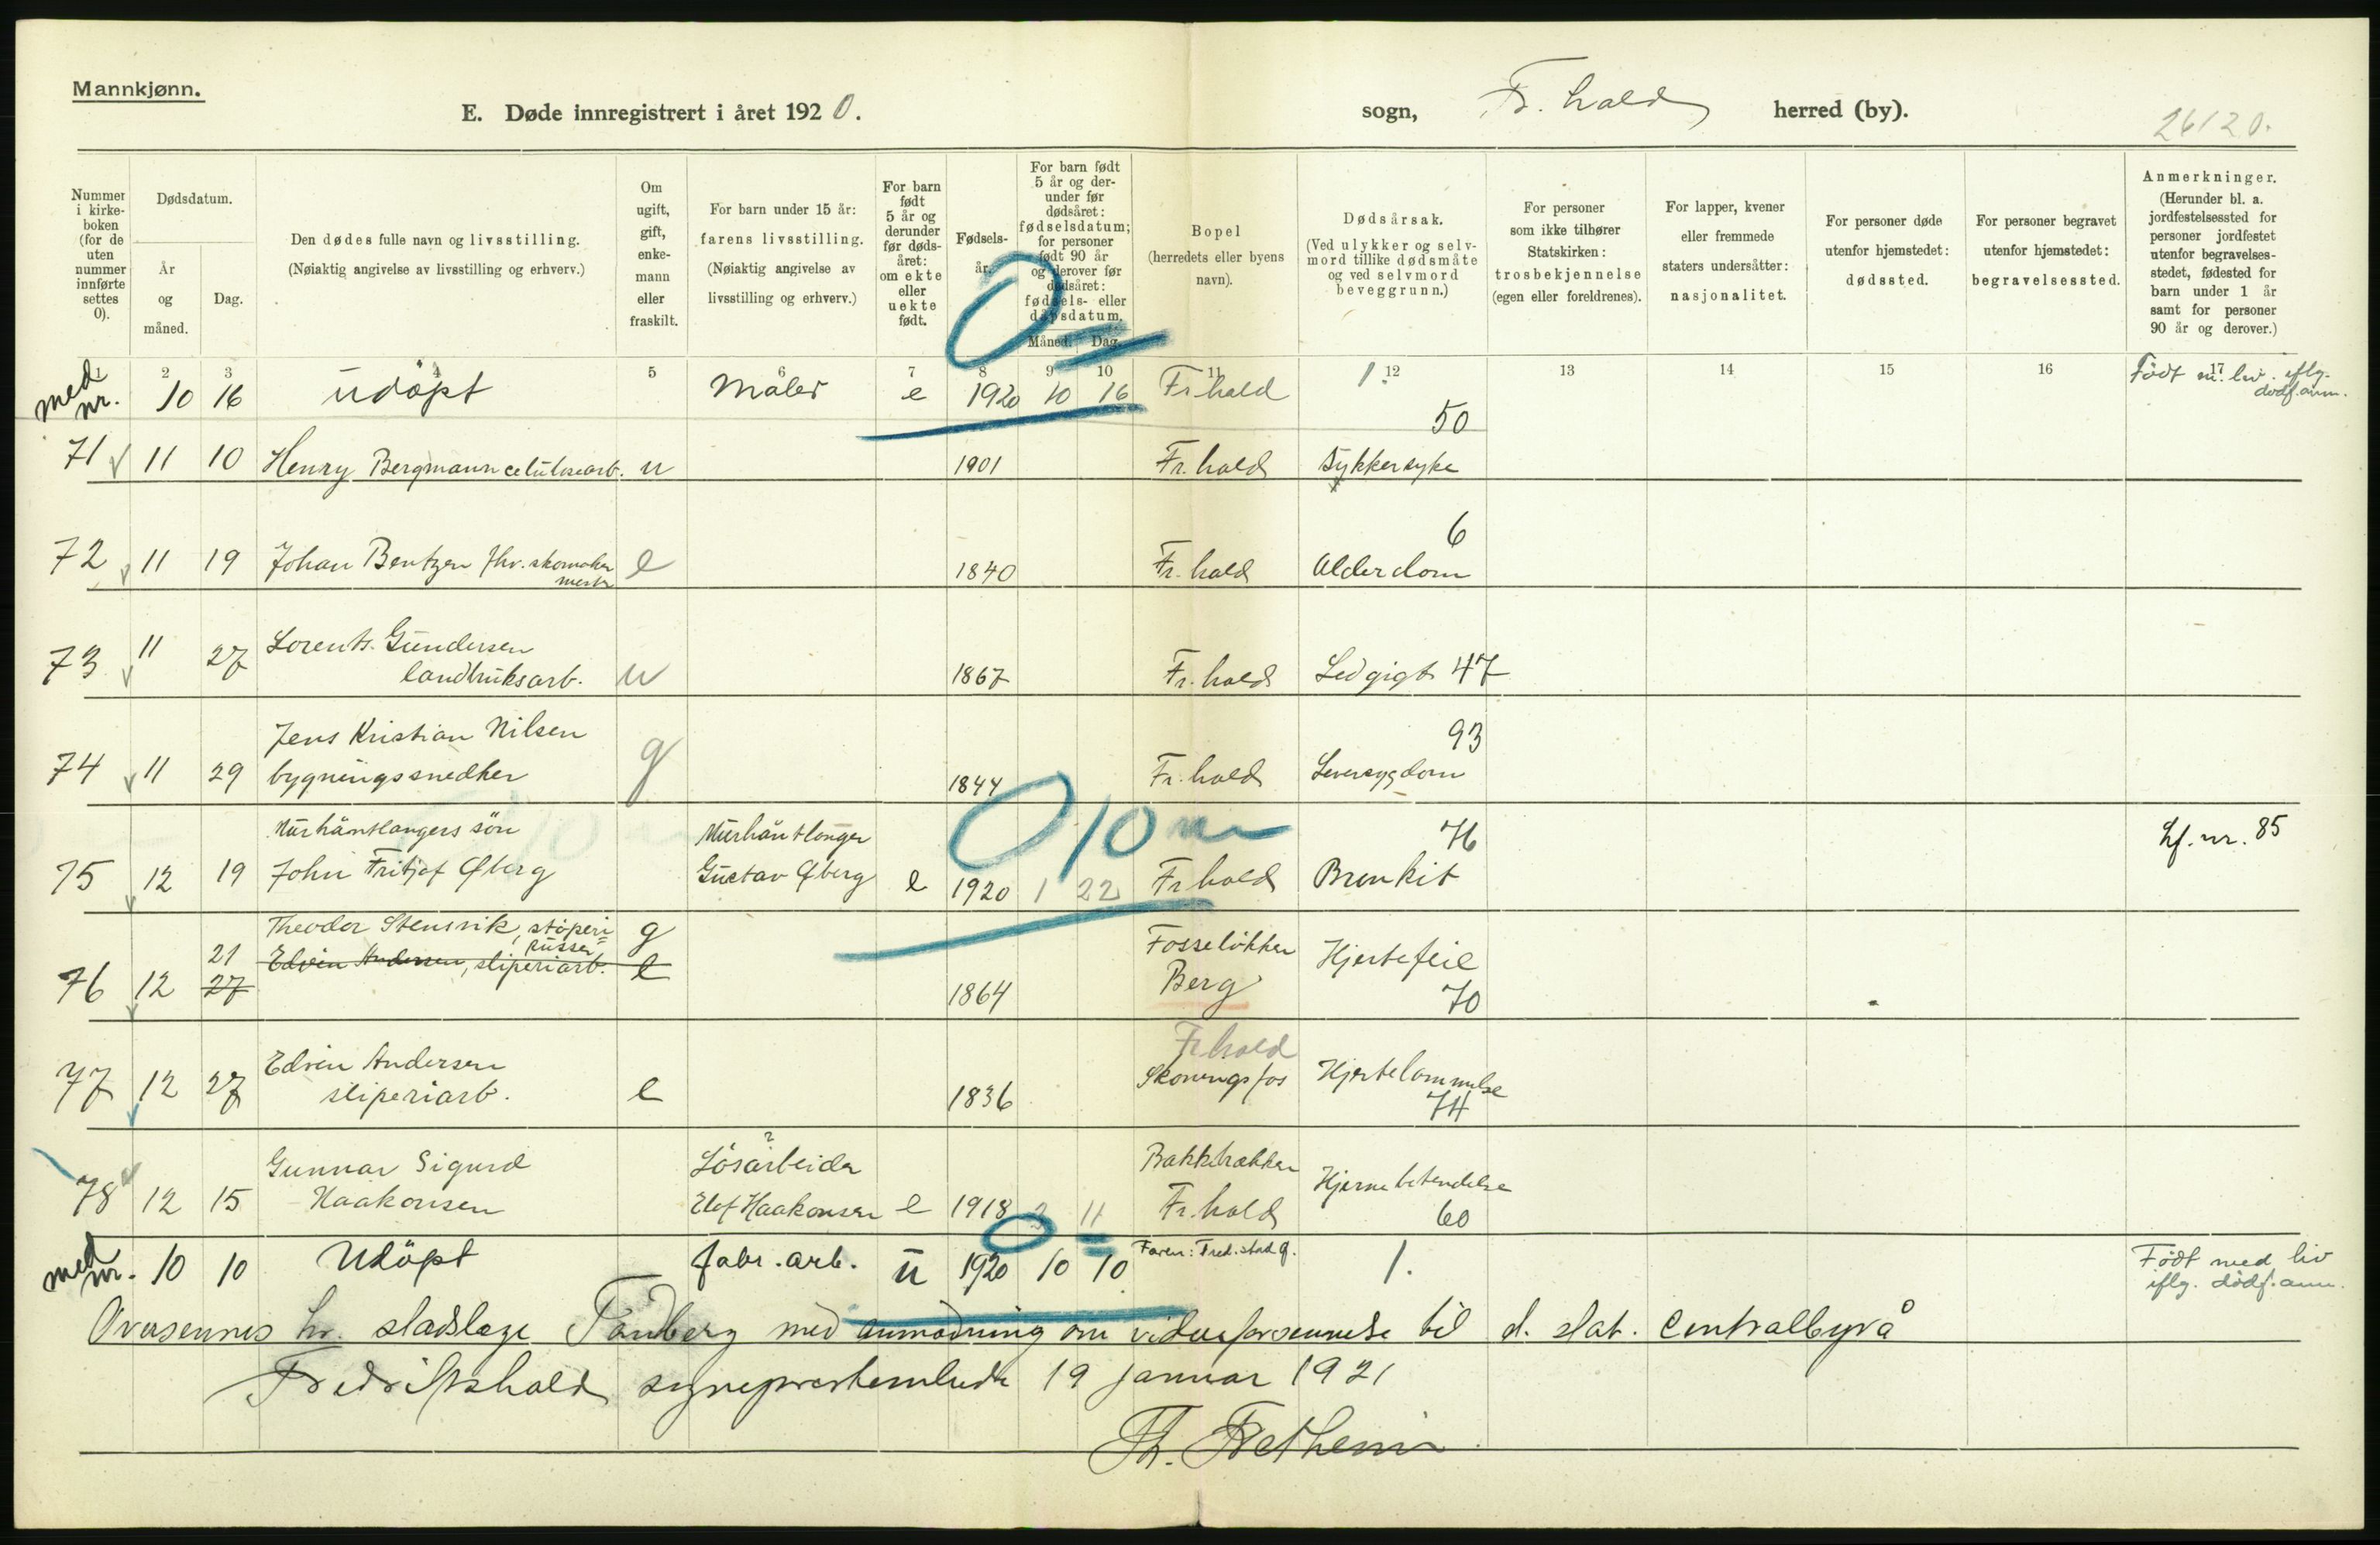 Mannkjønn.
E. Døde innregistrert i året 1920.
sogn, Fr.hald herred (by).
26120.
Nummer i kirkeboken (for de uten nummer innførte settes 0).
Dødsdatum.
År og måned.
Dag.
Den dødes fulle navn og livsstilling.
(Nøiaktig angivelse av livsstilling og erhverv.)
Om ugift, gift, enkemann eller fraskilt.
For barn under 15 år: farens livsstilling.
(Nøiaktig angivelse av livsstilling og erhverv.)
For barn født 5 år og derunder før dødsåret: om ekte eller uekte født.
Fødselsår.
For barn født 5 år og derunder før dødsåret: fødselsdatum; for personer født 90 år og derover før dødsåret: fødsels- eller dåpsdatum.
Måned. Dag.
Bopel (herredets eller byens navn).
Dødsårsak.
(Ved ulykker og selvmord tillike dødsmåte og ved selvmord beveggrunn.)
For personer som ikke tilhører Statskirken: trosbekjennelse (egen eller foreldrenes).
For lapper, kvener eller fremmede staters undersåtter: nasjonalitet.
For personer døde utenfor hjemstedet: dødssted.
For personer begravet utenfor hjemstedet: begravelsessted.
Anmerkninger.
(Herunder bl. a. jordfestelsessted for personer jordfestet utenfor begravelsesstedet, fødested for barn under 1 år samt for personer 90 år og derover.)
1 2 3 4 5 6 7 8 9 10 11 12 13 14 15 16 17
med nr. 10 16 udöpt Maler e 1920 10 16 Fr.hald 1. Födt m. liv. iflg. dødf.anm.
0
50
71 11 10 Henry Bergmann celulosearb. u 1901 Fr.hald Sykkersyke
6
72 11 19 Johan Bentzen fhv. skomaker mester e 1840 Fr.hald Alderdom
73 11 27 Lorents Gundersen landbruksarb. u 1867 Fr.hald Ledgigt 47
93
74 11 29 Jens Kristian Nilsen bygningssnedker g 1844 Fr.hald Leversygdom
0 10 m
76
75 12 19 Murhåntlangers sön John Fritjof Øberg Murhåntlanger Gustav Øberg e 1920 1 22 Fr.hald Bronkit Lf. nr. 85
76 12 21 27 Theodor Stensvik, stöperi pusser g Edvin Andersen, sliperiarb. e 1864 Fosselökken Berg Hjertefeil 70
77 12 27 Edvin Andersen sliperiarb. e 1836 Fr.hald Skoningsfos Hjertelammelse 74
78 12 15 Gunnar Sigurd Haakonsen Lösarbeider Elef Haakonsen e 1918 3 11 Fr.hald Hjernebetendelse 60
med nr. 10 10 Udöpt fabr.arb. u 1920 10 10 Faren: Fred.stad g. 1. Födt med liv iflg. dödf.anm.
Oversennes hr. stadslæge Tandberg med anmodning om videreforsennelse til d. stat. Centralbyrå
Fredrikshald sogneprestembede 19 januar 1921
Th. Bethem